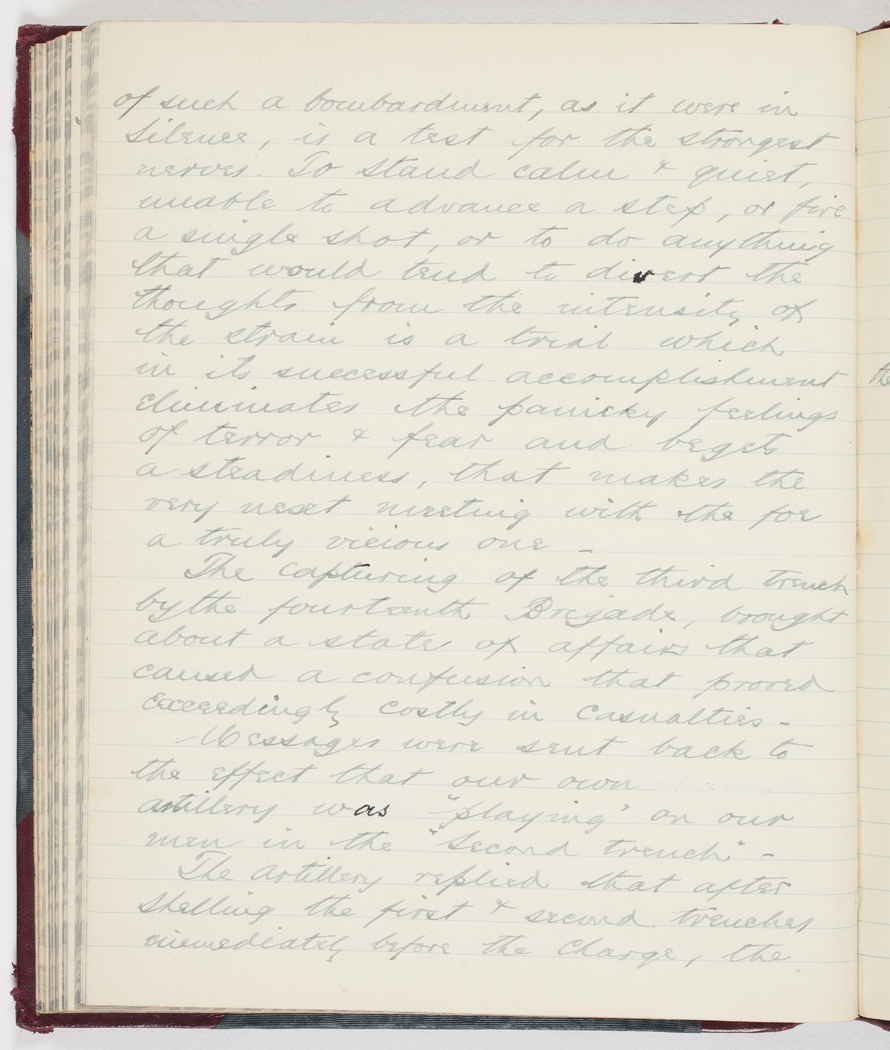 of such a bombardment, as it were in
silence, is a test for the strongest
nerves. To stand calm & quiet,
unable to advance a step, or fire
a single shot, or to do anything
that would tend to divert the
thoughts from the intensity of
the strain is a trial which
in its successful accomplishment
eliminates the panicky feelings
of terror & fear and begets
a steadiness, that makes the
very next meeting with the foe
a truly vicious one -
The capturing of the third trench
by the fourteenth Brigade, brought
about a state of affairs that
caused a confusion that proved
exceedingly costly in casualties -
Messages were sent back to
the effect that our own
artillery was "playing" on our
men in the "Second trench" -
The Artillery replied that after
shelling the first & second trenches
immediately before the Charge, the